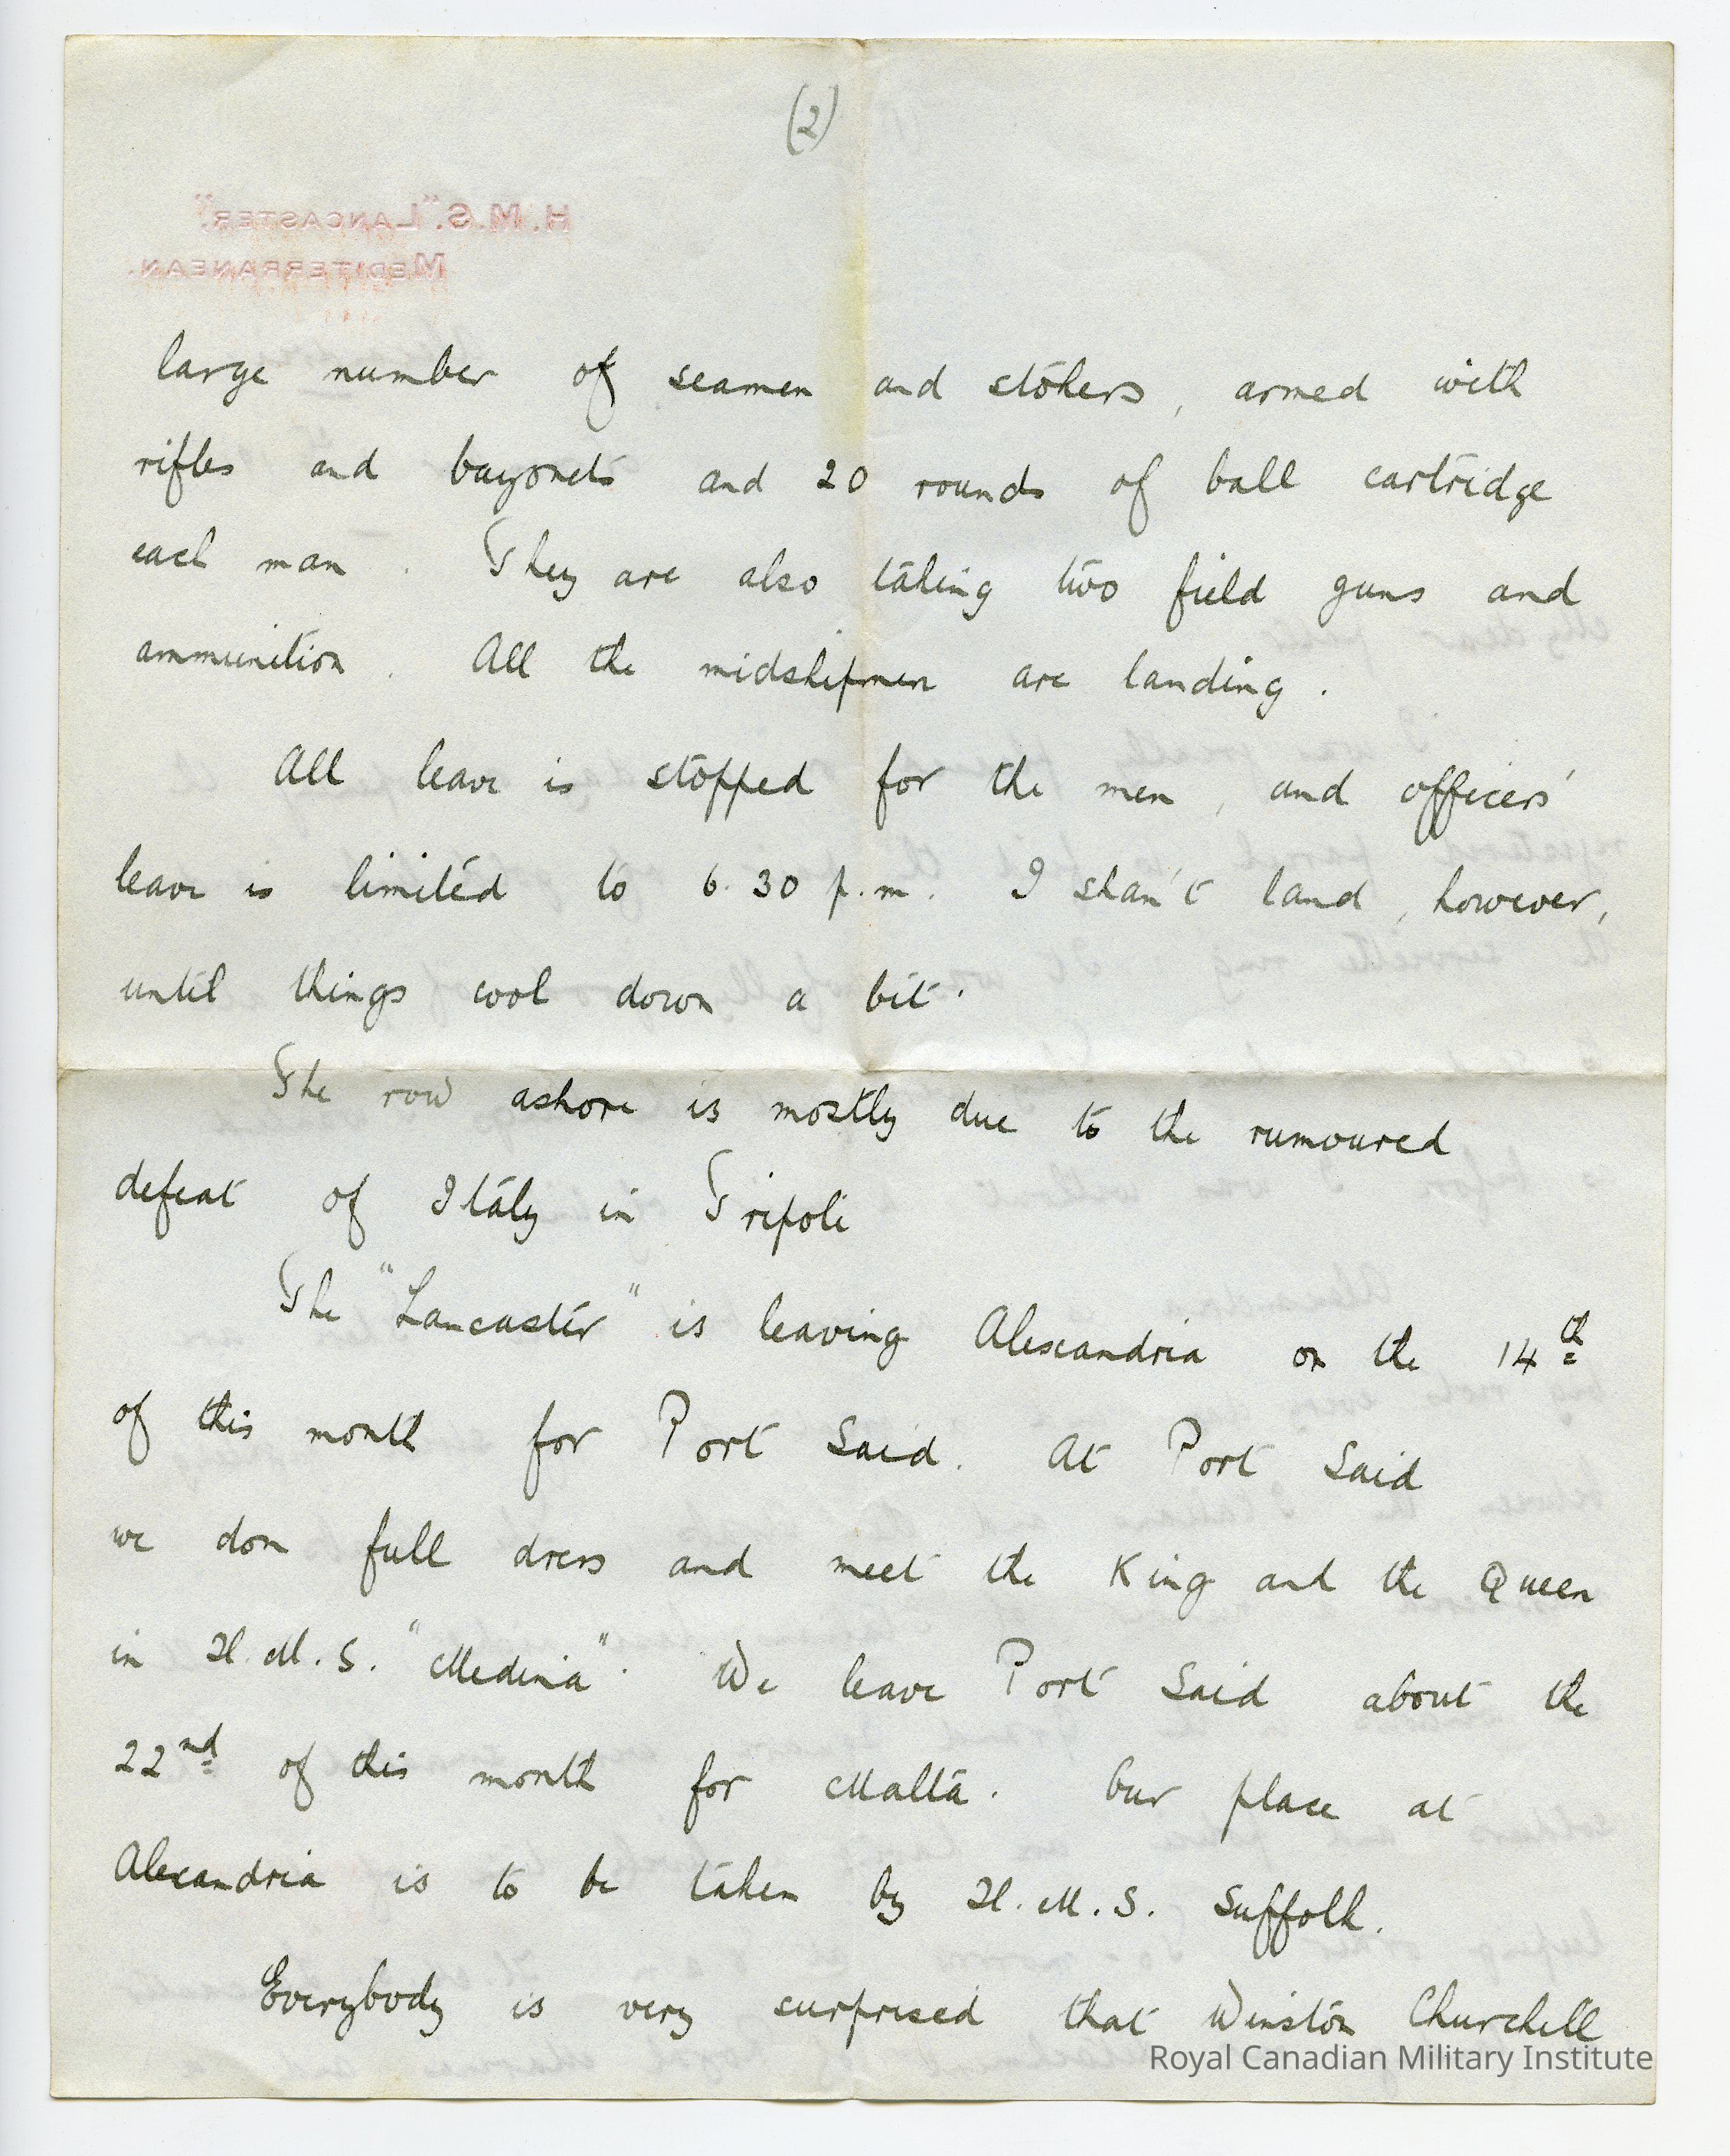 (2)
H.M.S. "LANCASTER".
MEDITERRANEAN.
large number of seamen and stokers, armed with
rifles and bayonets and 20 rounds of ball cartridge
each man. They are also taking two field guns and
ammunition. All the midshipmen are landing.
All leave is stopped for the men, and officers'
leave is limited to 6.30 p.m. I shan't land, however,
until things cool down a bit.
The row ashore is mostly due to the rumoured
defeat of Italy in Tripoli
The "Lancaster" is leaving Alexandria on the 14th
of this month for Port Said. At Port Said
we don full dress and meet the King and the Queen
in H.M.S. "Medina". We leave Port Said about the
22nd of this month for Malta. Our place at
Alexandria is to be taken by H.M.S. Suffolk.
Everybody is very surprised that Winston Churchill
Royal Canadian Military Institute